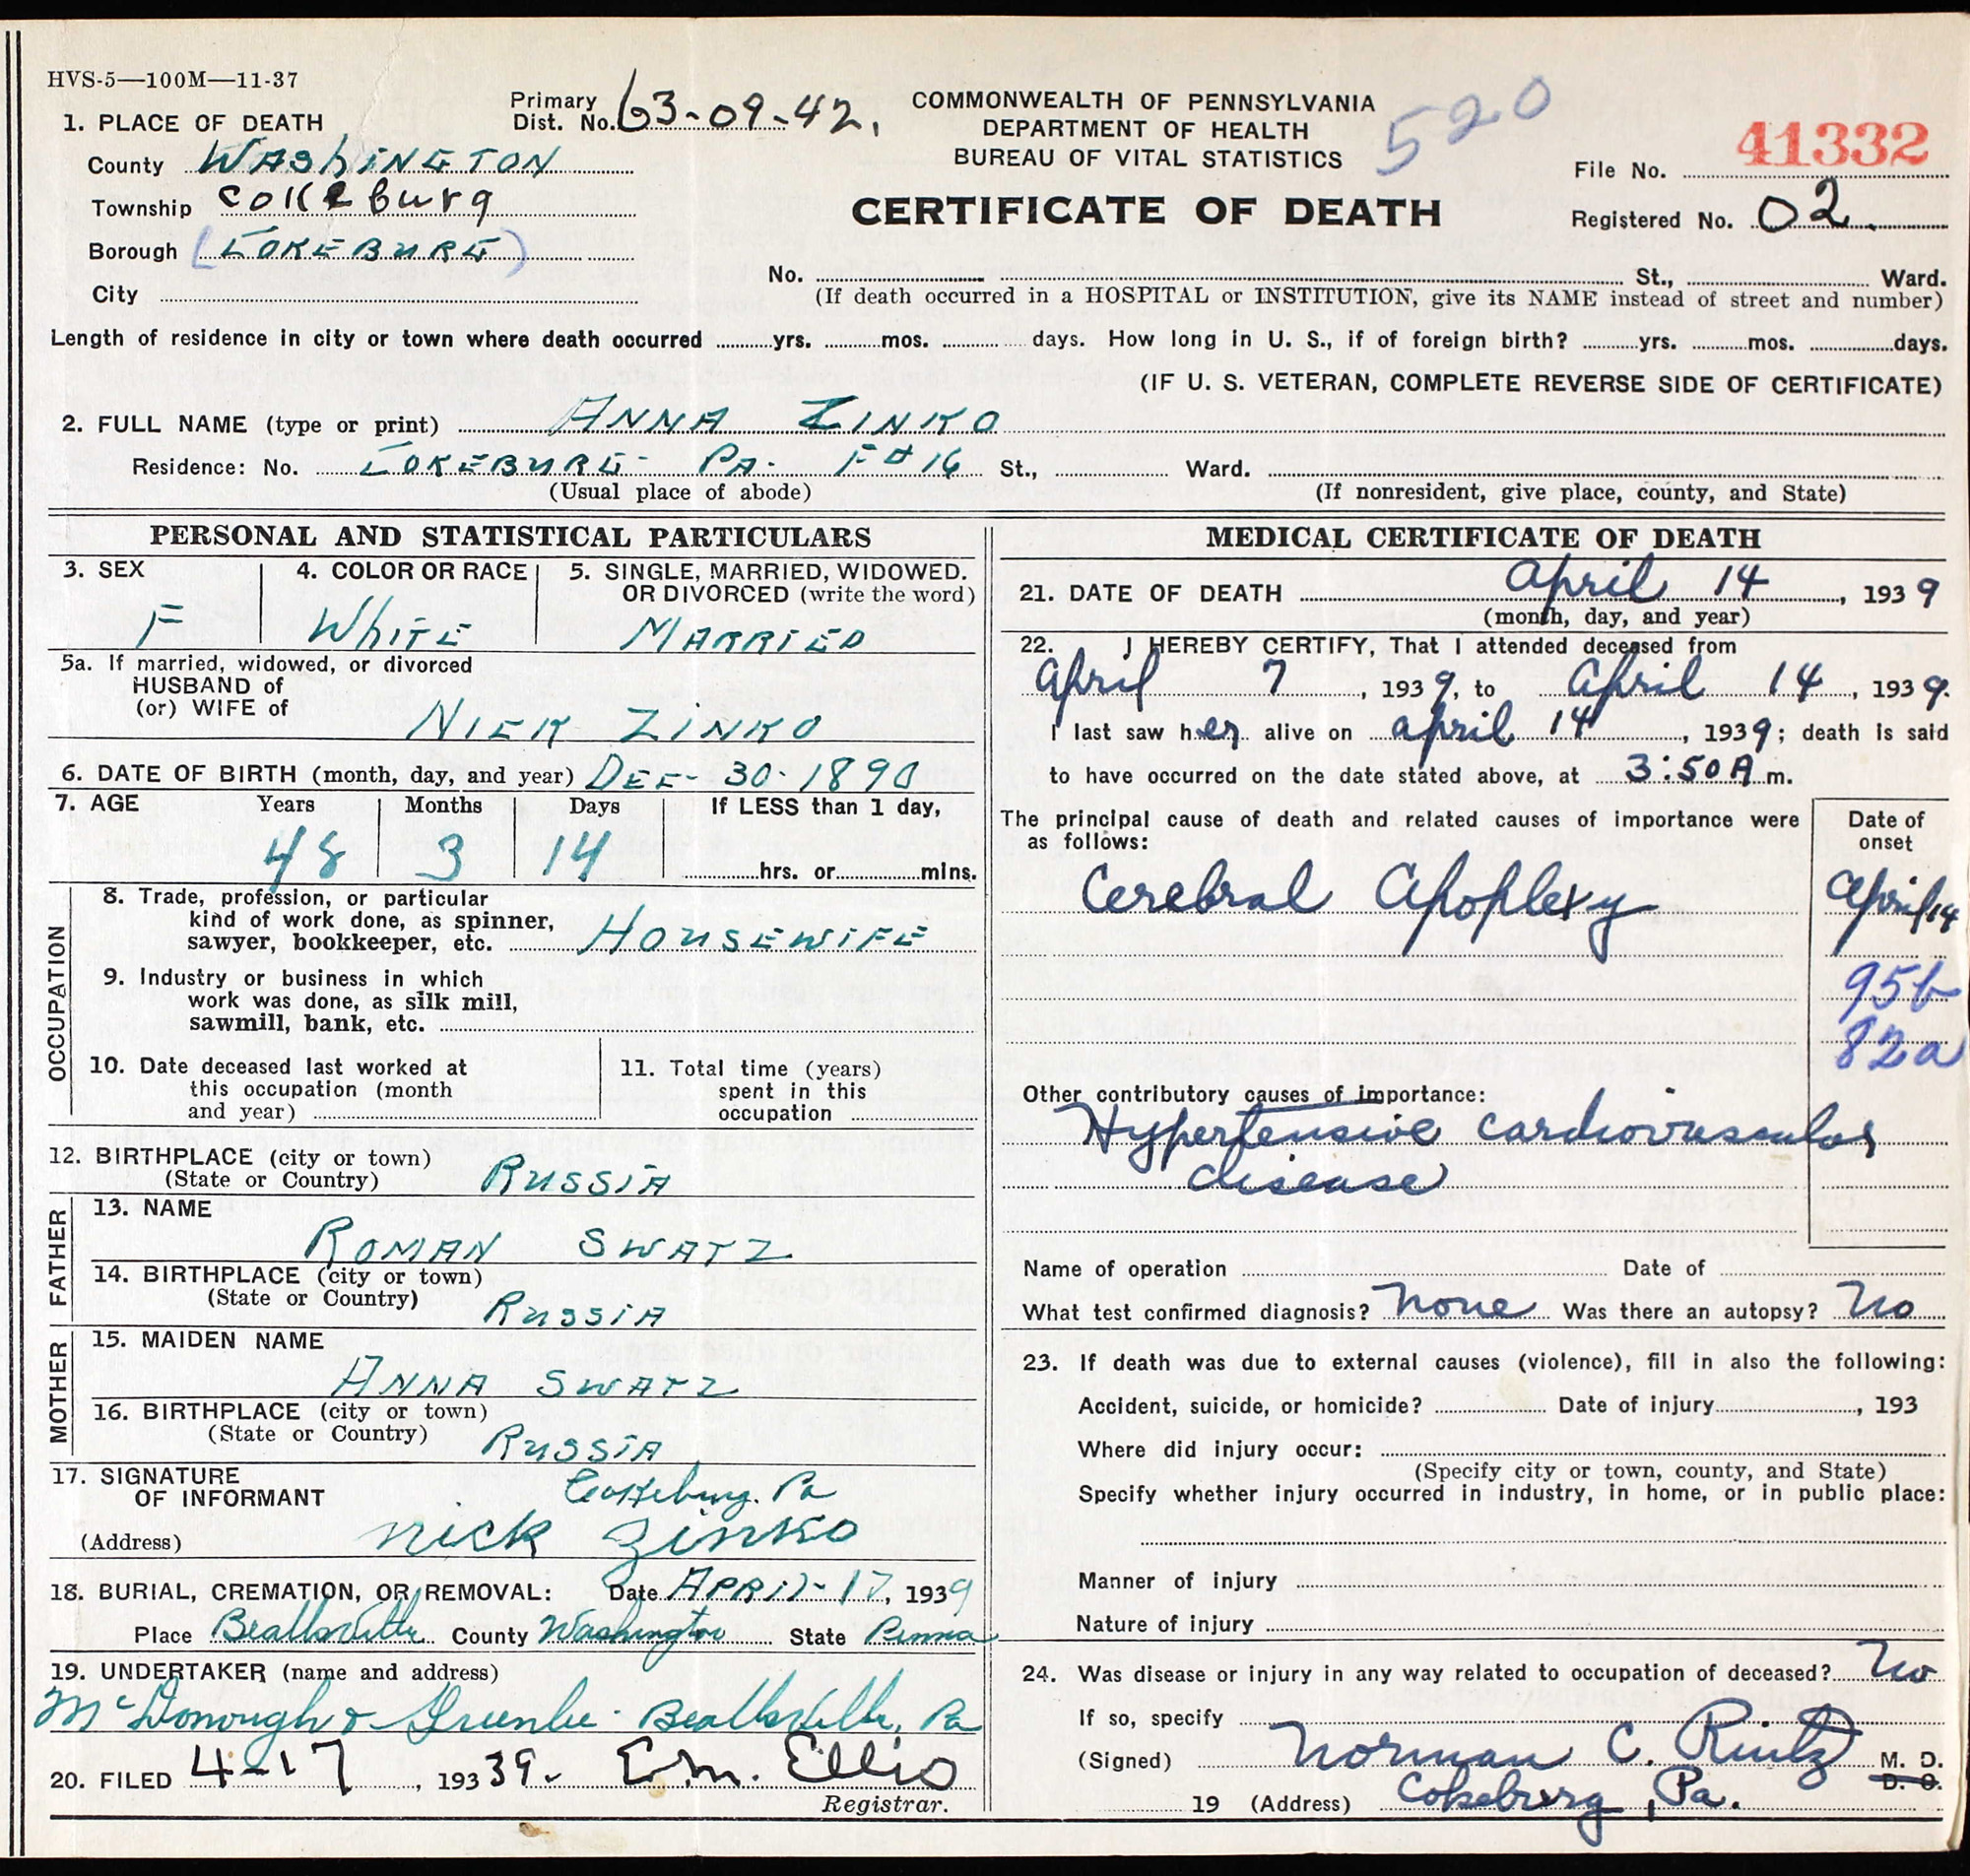 HVS-5—100M—11-37
1. PLACE OF DEATH
Primary Dist. No. 63-09-42.
COMMONWEALTH OF PENNSYLVANIA
DEPARTMENT OF HEALTH
BUREAU OF VITAL STATISTICS
520
41332
County WAShINGTON
File No.
Township cokeburg
CERTIFICATE OF DEATH
Registered No. 02
Borough (COKEBURG)
City
No. St., Ward.
(If death occurred in a HOSPITAL or INSTITUTION, give its NAME instead of street and number)
Length of residence in city or town where death occurred yrs. mos. days. How long in U. S., if of foreign birth? yrs. mos. days.
(IF U. S. VETERAN, COMPLETE REVERSE SIDE OF CERTIFICATE)
2. FULL NAME (type or print) ANNA ZINKO
Residence: No. COKEBURG- PA. F#16 St., Ward.
(Usual place of abode) (If nonresident, give place, county, and State)
PERSONAL AND STATISTICAL PARTICULARS
3. SEX
F
4. COLOR OR RACE
WhITE
5. SINGLE, MARRIED, WIDOWED.
OR DIVORCED (write the word)
MARRIED
5a. If married, widowed, or divorced
HUSBAND of
(or) WIFE of
NICK ZINKO
6. DATE OF BIRTH (month, day, and year) DEC- 30- 1890
7. AGE Years Months Days If LESS than 1 day,
48 3 14 hrs. or mins.
OCCUPATION
8. Trade, profession, or particular
kind of work done, as spinner,
sawyer, bookkeeper, etc. HOUSEWIFE
9. Industry or business in which
work was done, as silk mill,
sawmill, bank, etc.
10. Date deceased last worked at
this occupation (month
and year)
11. Total time (years)
spent in this
occupation
12. BIRTHPLACE (city or town)
(State or Country) RUSSIA
FATHER
13. NAME
ROMAN SWATZ
14. BIRTHPLACE (city or town)
(State or Country) RUSSIA
MOTHER
15. MAIDEN NAME
ANNA SWATZ
16. BIRTHPLACE (city or town)
(State or Country) RUSSIA
17. SIGNATURE
OF INFORMANT Cokeburg. Pa
(Address) nick zinko
18. BURIAL, CREMATION, OR REMOVAL: Date APRIL- 17, 1939
Place Beallsville County Washington State Penna
19. UNDERTAKER (name and address)
McDonough & Greenlee - Beallsville, Pa
20. FILED 4-17, 193 39. E.M. Ellis
Registrar.
MEDICAL CERTIFICATE OF DEATH
21. DATE OF DEATH April 14, 1939
(month, day, and year)
22. I HEREBY CERTIFY, That I attended deceased from
April 7, 1939, to April 14, 1939.
I last saw her alive on april 14, 1939; death is said
to have occurred on the date stated above, at 3:50 A.m.
The principal cause of death and related causes of importance were
as follows:
Date of
onset
Cerebral Apoplexy
April 14
95b
82a
Other contributory causes of importance:
Hypertensive cardiovascular
disease
Name of operation Date of
What test confirmed diagnosis? none Was there an autopsy? No
23. If death was due to external causes (violence), fill in also the following:
Accident, suicide, or homicide? Date of injury, 193
Where did injury occur:
(Specify city or town, county, and State)
Specify whether injury occurred in industry, in home, or in public place:
Manner of injury
Nature of injury
24. Was disease or injury in any way related to occupation of deceased? No
If so, specify
(Signed) Norman C. M. D.
D. O.
19 (Address) Cokeburg, Pa.